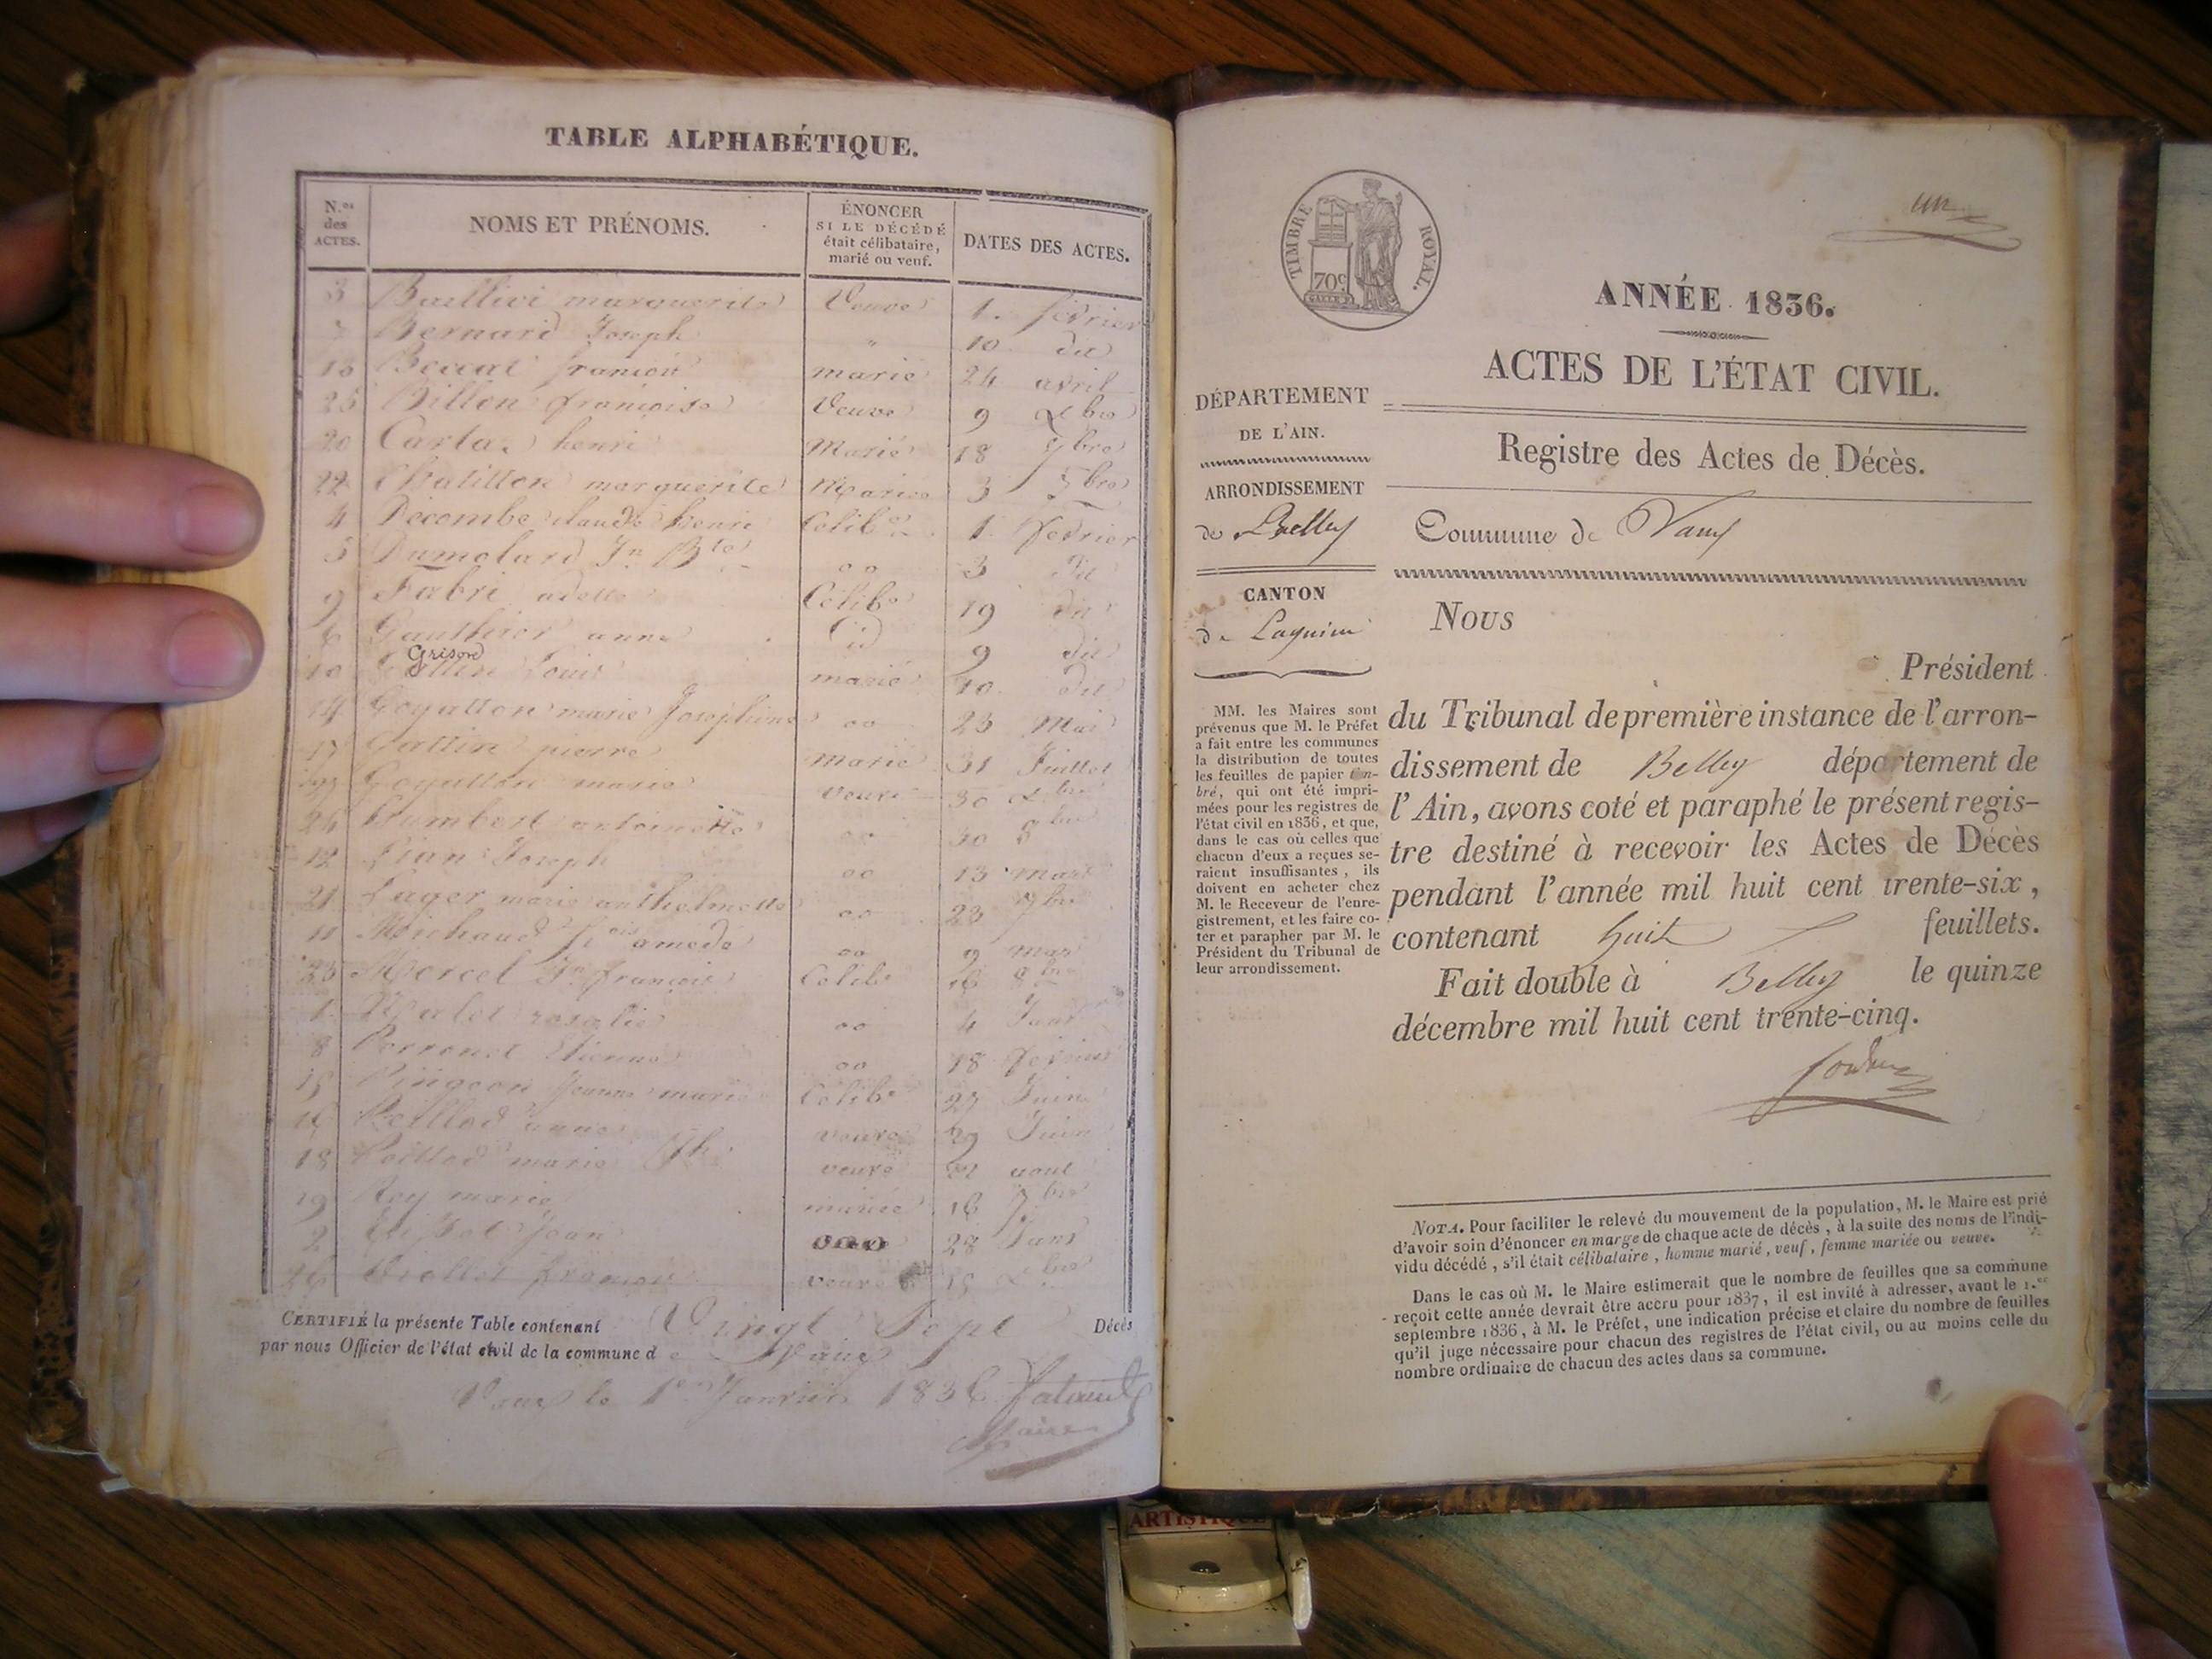 TABLE ALPHABÉTIQUE.
N.os des ACTES.
NOMS ET PRÉNOMS.
ÉNONCER SI LE DÉCÉDÉ était célibataire, marié ou veuf.
DATES DES ACTES.
3 marguerite Veuve 1. février
Bernard Joseph " 10 dit
13 marié 24 avril
25 Billon françoise Veuve 9
20 henri Marié 18 7bre
22 Chatillon marguerite 3
4 Decombe claude henri Celibe 1 fevrier
5 Dumolard Jn Bte oo 3 dit
9 Fabri adelle Célibe 19 dit
6 Gauthier anne id 9 dit
Grison
10 Louis marié 10 dit
14 Goyatton marie Josephine oo 23 Mai
17 Gattin pierre marié 31 Juillet
Goyatton marie veuve 30
24 Humbert antoinette oo 30 8bre
12 Joseph oo 13 mars
21 Luger marie anthelmette oo 23 7bre
11 Michaud fois amedé oo 9 mars
23 Mercel Jn françois Celibe 16 8bre
1 rosalie oo 4 Janv
8 Perronet Etienne oo 18 fevrier
15 Pingeon Jeanne marie Célibe 27 Juin
16 anne veuve 29 Juin
18 marie veuve aout
19 Rey marie mariée 16 7bre
2 Jean 28 Janv
26 veuve 15
CERTIFIÉ la présente Table contenant Vingt Sept Décès
par nous Officier de l'état civil de la commune de Vaux
Vaux le 1er Janvier 183
Maire
un
TIMBRE ROYAL.
70c
ANNÉE 1836.
ACTES DE L'ÉTAT CIVIL.
Registre des Actes de Décès.
DÉPARTEMENT
DE L'AIN.
ARRONDISSEMENT
de Belley
Commune de Vaux
CANTON
de Lagnieu
MM. les Maires sont
prévenus que M. le Préfet
a fait entre les communes
la distribution de toutes
les feuilles de papier tim-
bré, qui ont été impri-
mées pour les registres de
l'état civil en 1836, et que,
dans le cas où celles que
chacun d'eux a reçues se-
raient insuffisantes, ils
doivent en acheter chez
M. le Receveur de l'enre-
gistrement, et les faire co-
ter et parapher par M. le
Président du Tribunal de
leur arrondissement.
Nous
Président
du Tribunal de première instance de l'arron-
dissement de Belley département de
l'Ain, avons coté et paraphé le présent regis-
tre destiné à recevoir les Actes de Décès
pendant l'année mil huit cent trente-six,
contenant huit feuillets.
Fait double à Belley le quinze
décembre mil huit cent trente-cinq.
NOTA. Pour faciliter le relevé du mouvement de la population, M. le Maire est prié
d'avoir soin d'énoncer en marge de chaque acte de décès, à la suite des noms de l'indi-
vidu décédé, s'il était célibataire, homme marié, veuf, femme mariée ou veuve.
Dans le cas où M. le Maire estimerait que le nombre de feuilles que sa commune
reçoit cette année devrait être accru pour 1837, il est invité à adresser, avant le 1.er
septembre 1836, à M. le Préfet, une indication précise et claire du nombre de feuilles
qu'il juge nécessaire pour chacun des registres de l'état civil, ou au moins celle du
nombre ordinaire de chacun des actes dans sa commune.
ARTISTIQUE